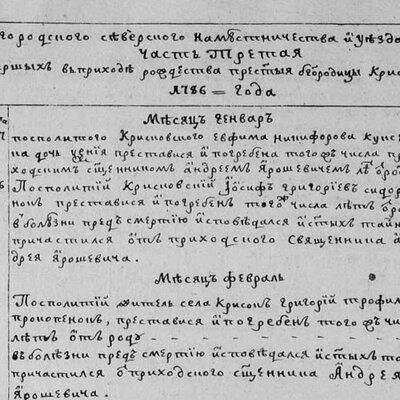 городского сѣверского намѣстничества и уѣзда
часть третая
ршыхъ въ приходѣ рождества престыя бгородицы Крис
1786 = года
Мѣсяцъ генваръ
посполитого Крисковского Евфима Никифорова
на дочь преставися и погребена того ж числа
ходскимъ сщенникомъ Андреемъ Ярошевичемъ
Посполитій Крисковскій Іосифъ Григоріевъ сидор
преставися и погребенъ того числа лѣтъ
въ болѣзни предъ смертію исповѣдался и стыхъ тайн
причастился отъ приходского священника
дрея Ярошевича.
Мѣсяцъ февраль
Посполитій житель села Григорій трофим
преставися и погребенъ того ж чи
лѣтъ отъ роду
въ болѣзни предъ смертію исповѣдался и стыхъ
причастился о приходского сщенника Андрея
Ярошевича.